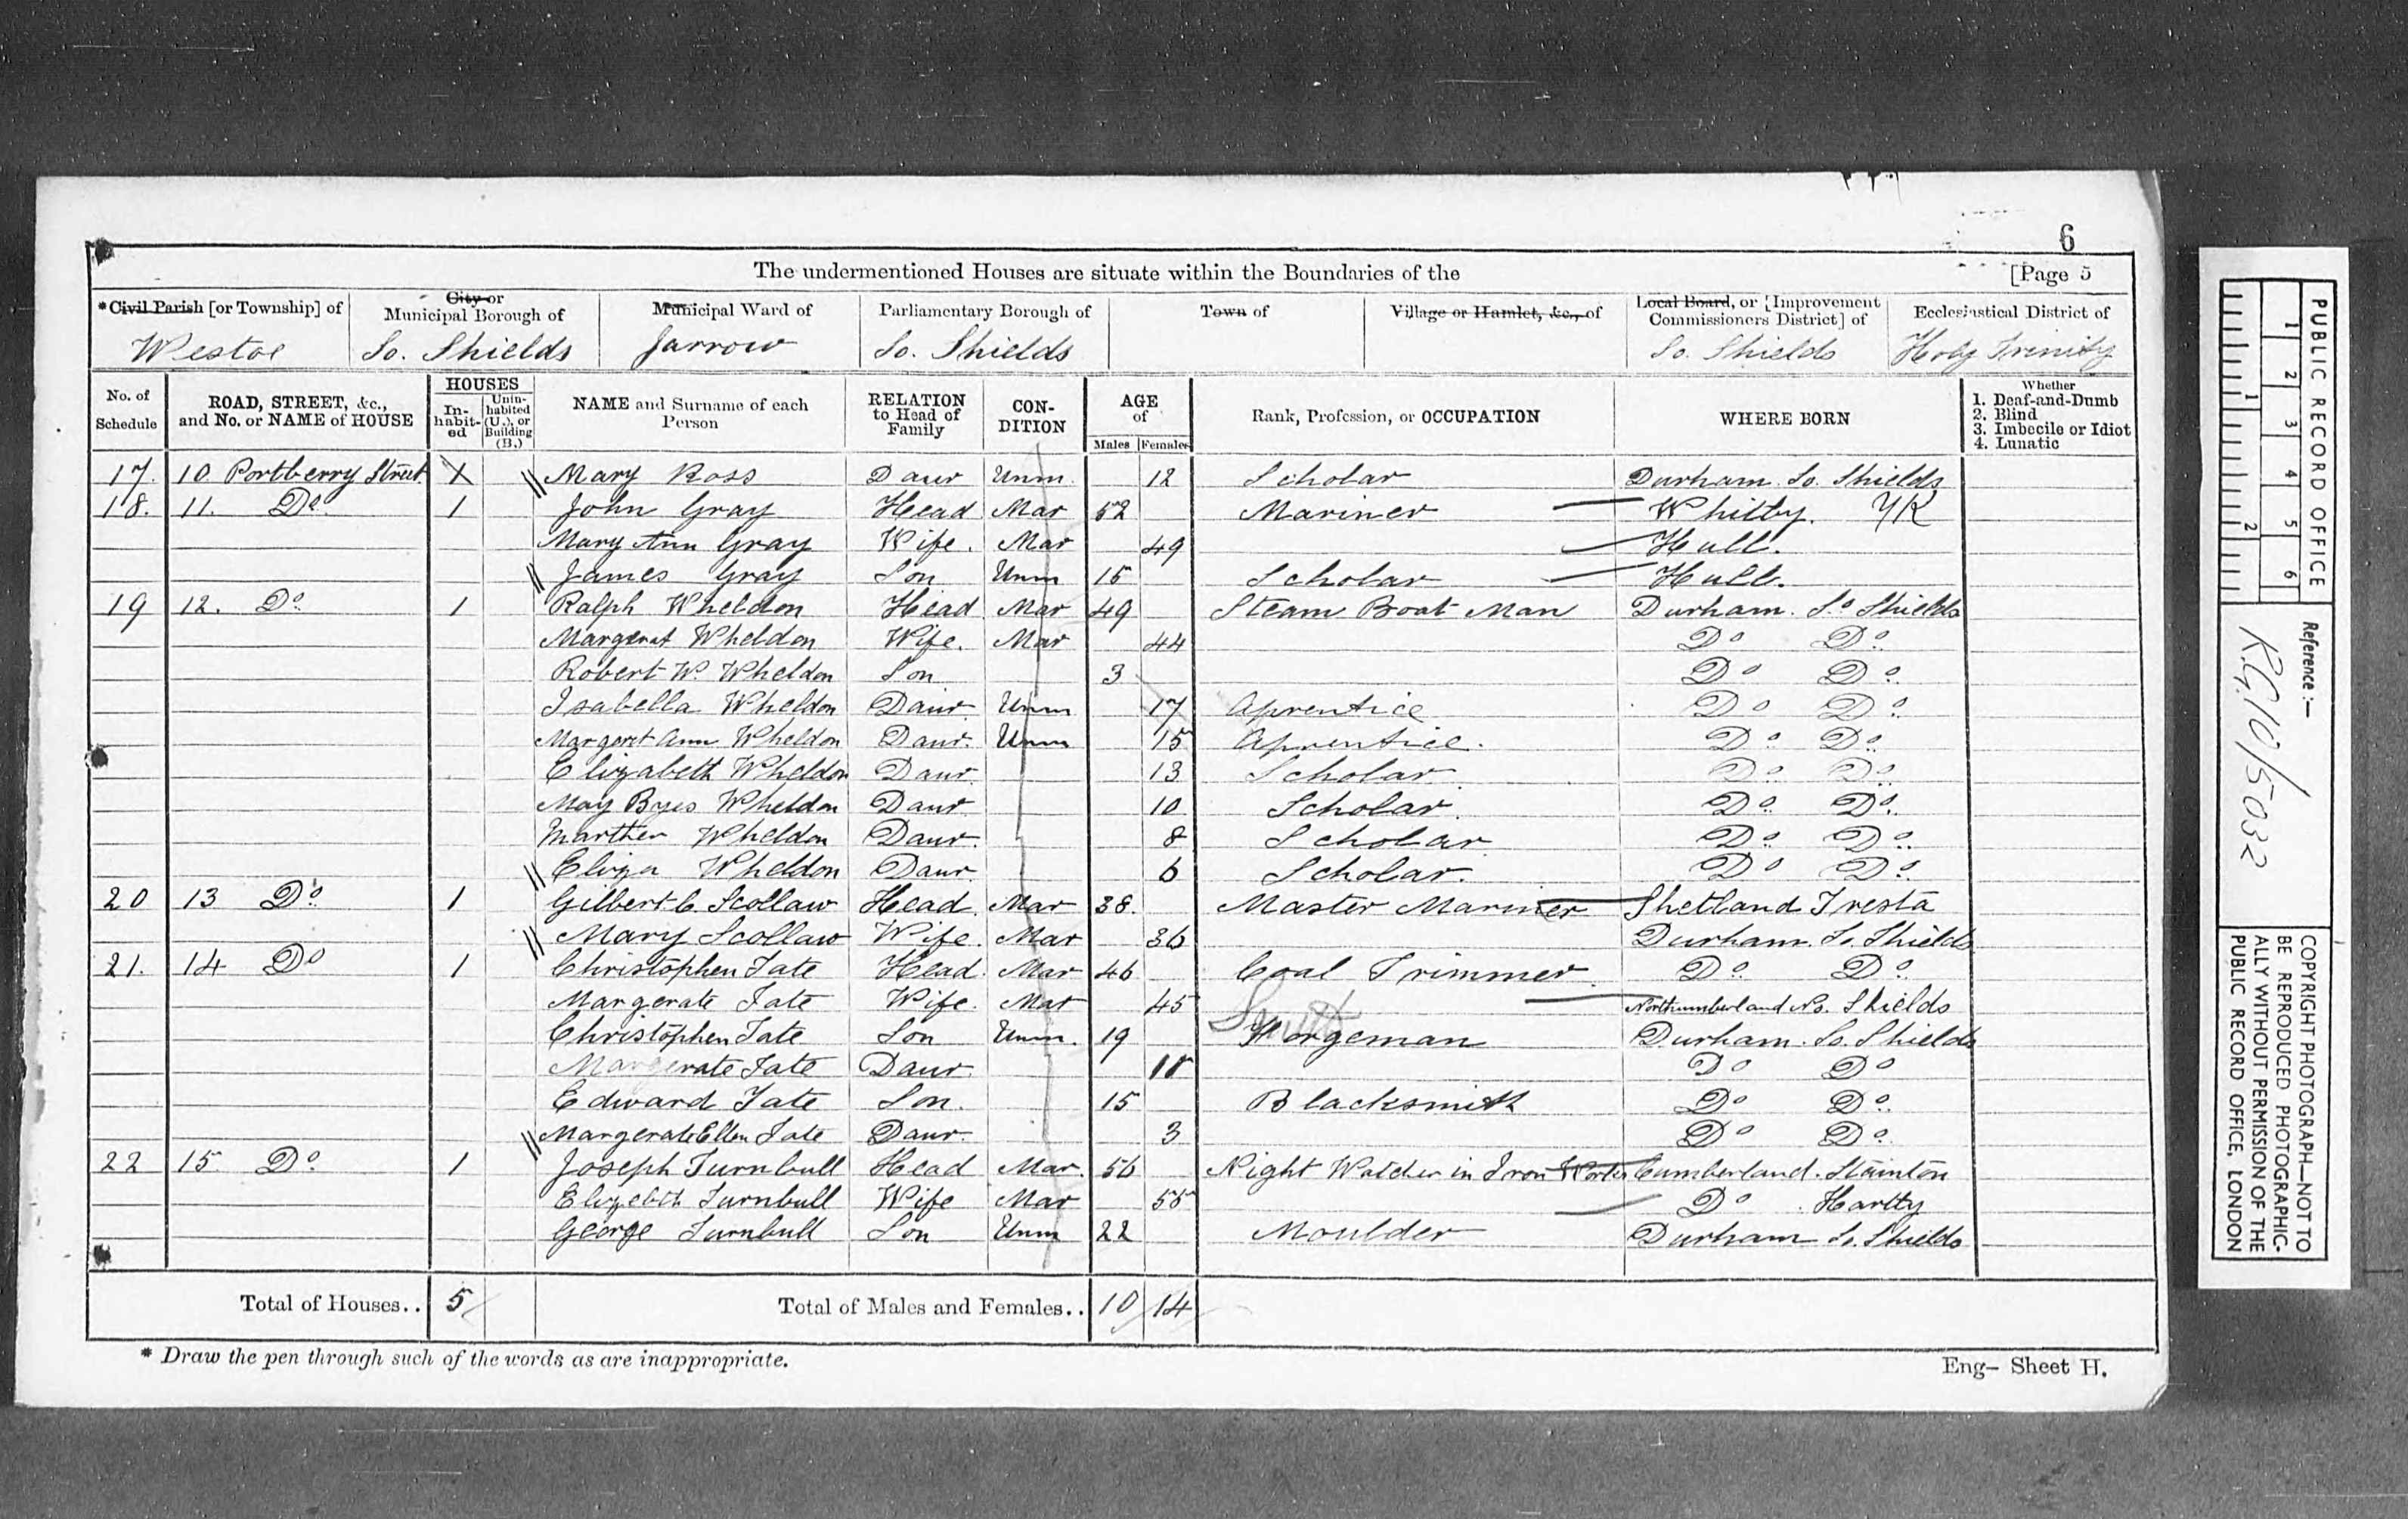 6
The undermentioned Houses are situate within the Boundaries of the [Page 5
*Civil Parish [or Township] of City or Municipal Borough of Municipal Ward of Parliamentary Borough of Town of Village or Hamlet, &c., of Local Board, or [Improvement Commissioners District] of Ecclesiastical District of
Westoe So. Shields Jarrow So. Shields So. Shields Holy Trinity
No. of Schedule ROAD, STREET, &c., and No. or NAME of HOUSE HOUSES In-habit-ed Unin-habited (U.), or Building (B.) NAME and Surname of each Person RELATION to Head of Family CON-DITION AGE of Males Females Rank, Profession, or OCCUPATION WHERE BORN Whether 1. Deaf-and-Dumb 2. Blind 3. Imbecile or Idiot 4. Lunatic
17. 10 Portberry Street X Mary Ross Daur Unm. 12 Scholar Durham So. Shields
18. 11. Do 1 John Gray Head Mar 52 Mariner Whitby. YK
Mary Ann Gray Wife. Mar 49 Hull.
James Gray Son Unm 15 Scholar Hull.
19 12. Do 1 Ralph Wheldon Head Mar 49 Steam Boat Man Durham. So Shields
Margeret Wheldon Wife. Mar 44 Do Do
Robert W. Wheldon Son 3 Do Do
Isabella Wheldon Daur. Unm 17 Aprentice Do Do
Margeret Ann Wheldon Daur. Unm 15 Aprentice. Do Do
Elizabeth Wheldon Daur 13 Scholar. Do Do
May Wheldon Daur 10 Scholar. Do Do
Marther Wheldon Daur. 8 Scholar Do Do
Eliza Wheldon Daur. 6 Scholar. Do Do
20 13 Do 1 Gilbert C. Scollaw Head. Mar 38. Master Mariner Shetland Tresta
Mary Scollaw Wife. Mar 36 Durham. So. Shields
21. 14 Do 1 Christophen Tate Head. Mar 46 Coal Trimmer Do Do
Margerate Tate Wife. Mar 45 Northumberland No. Shields
Christophen Tate Son Unm. 19 Smith Forgeman Durham. So. Shields
Margerate Tate Daur. Do Do
Edward Tate Son. 15 Blacksmith Do Do
Margerate Ellen Tate Daur. 3 Do Do
22 15 Do 1 Joseph Turnbull Head Mar. 56 Night Watcher in Iron Works Cumberland. Stainton
Elizebth Turnbull Wife Mar 55 Do Hartty
George Turnbull Son Unm 22 Moulder Durham So. Shields
Total of Houses.. 5 Total of Males and Females.. 10 14
* Draw the pen through such of the words as are inappropriate. Eng- Sheet H.
PUBLIC RECORD OFFICE
1 2 3 4 5 6
1 2
Reference:-
R.G. 10/5032
COPYRIGHT PHOTOGRAPH—NOT TO
BE REPRODUCED PHOTOGRAPHIC-
ALLY WITHOUT PERMISSION OF THE
PUBLIC RECORD OFFICE, LONDON